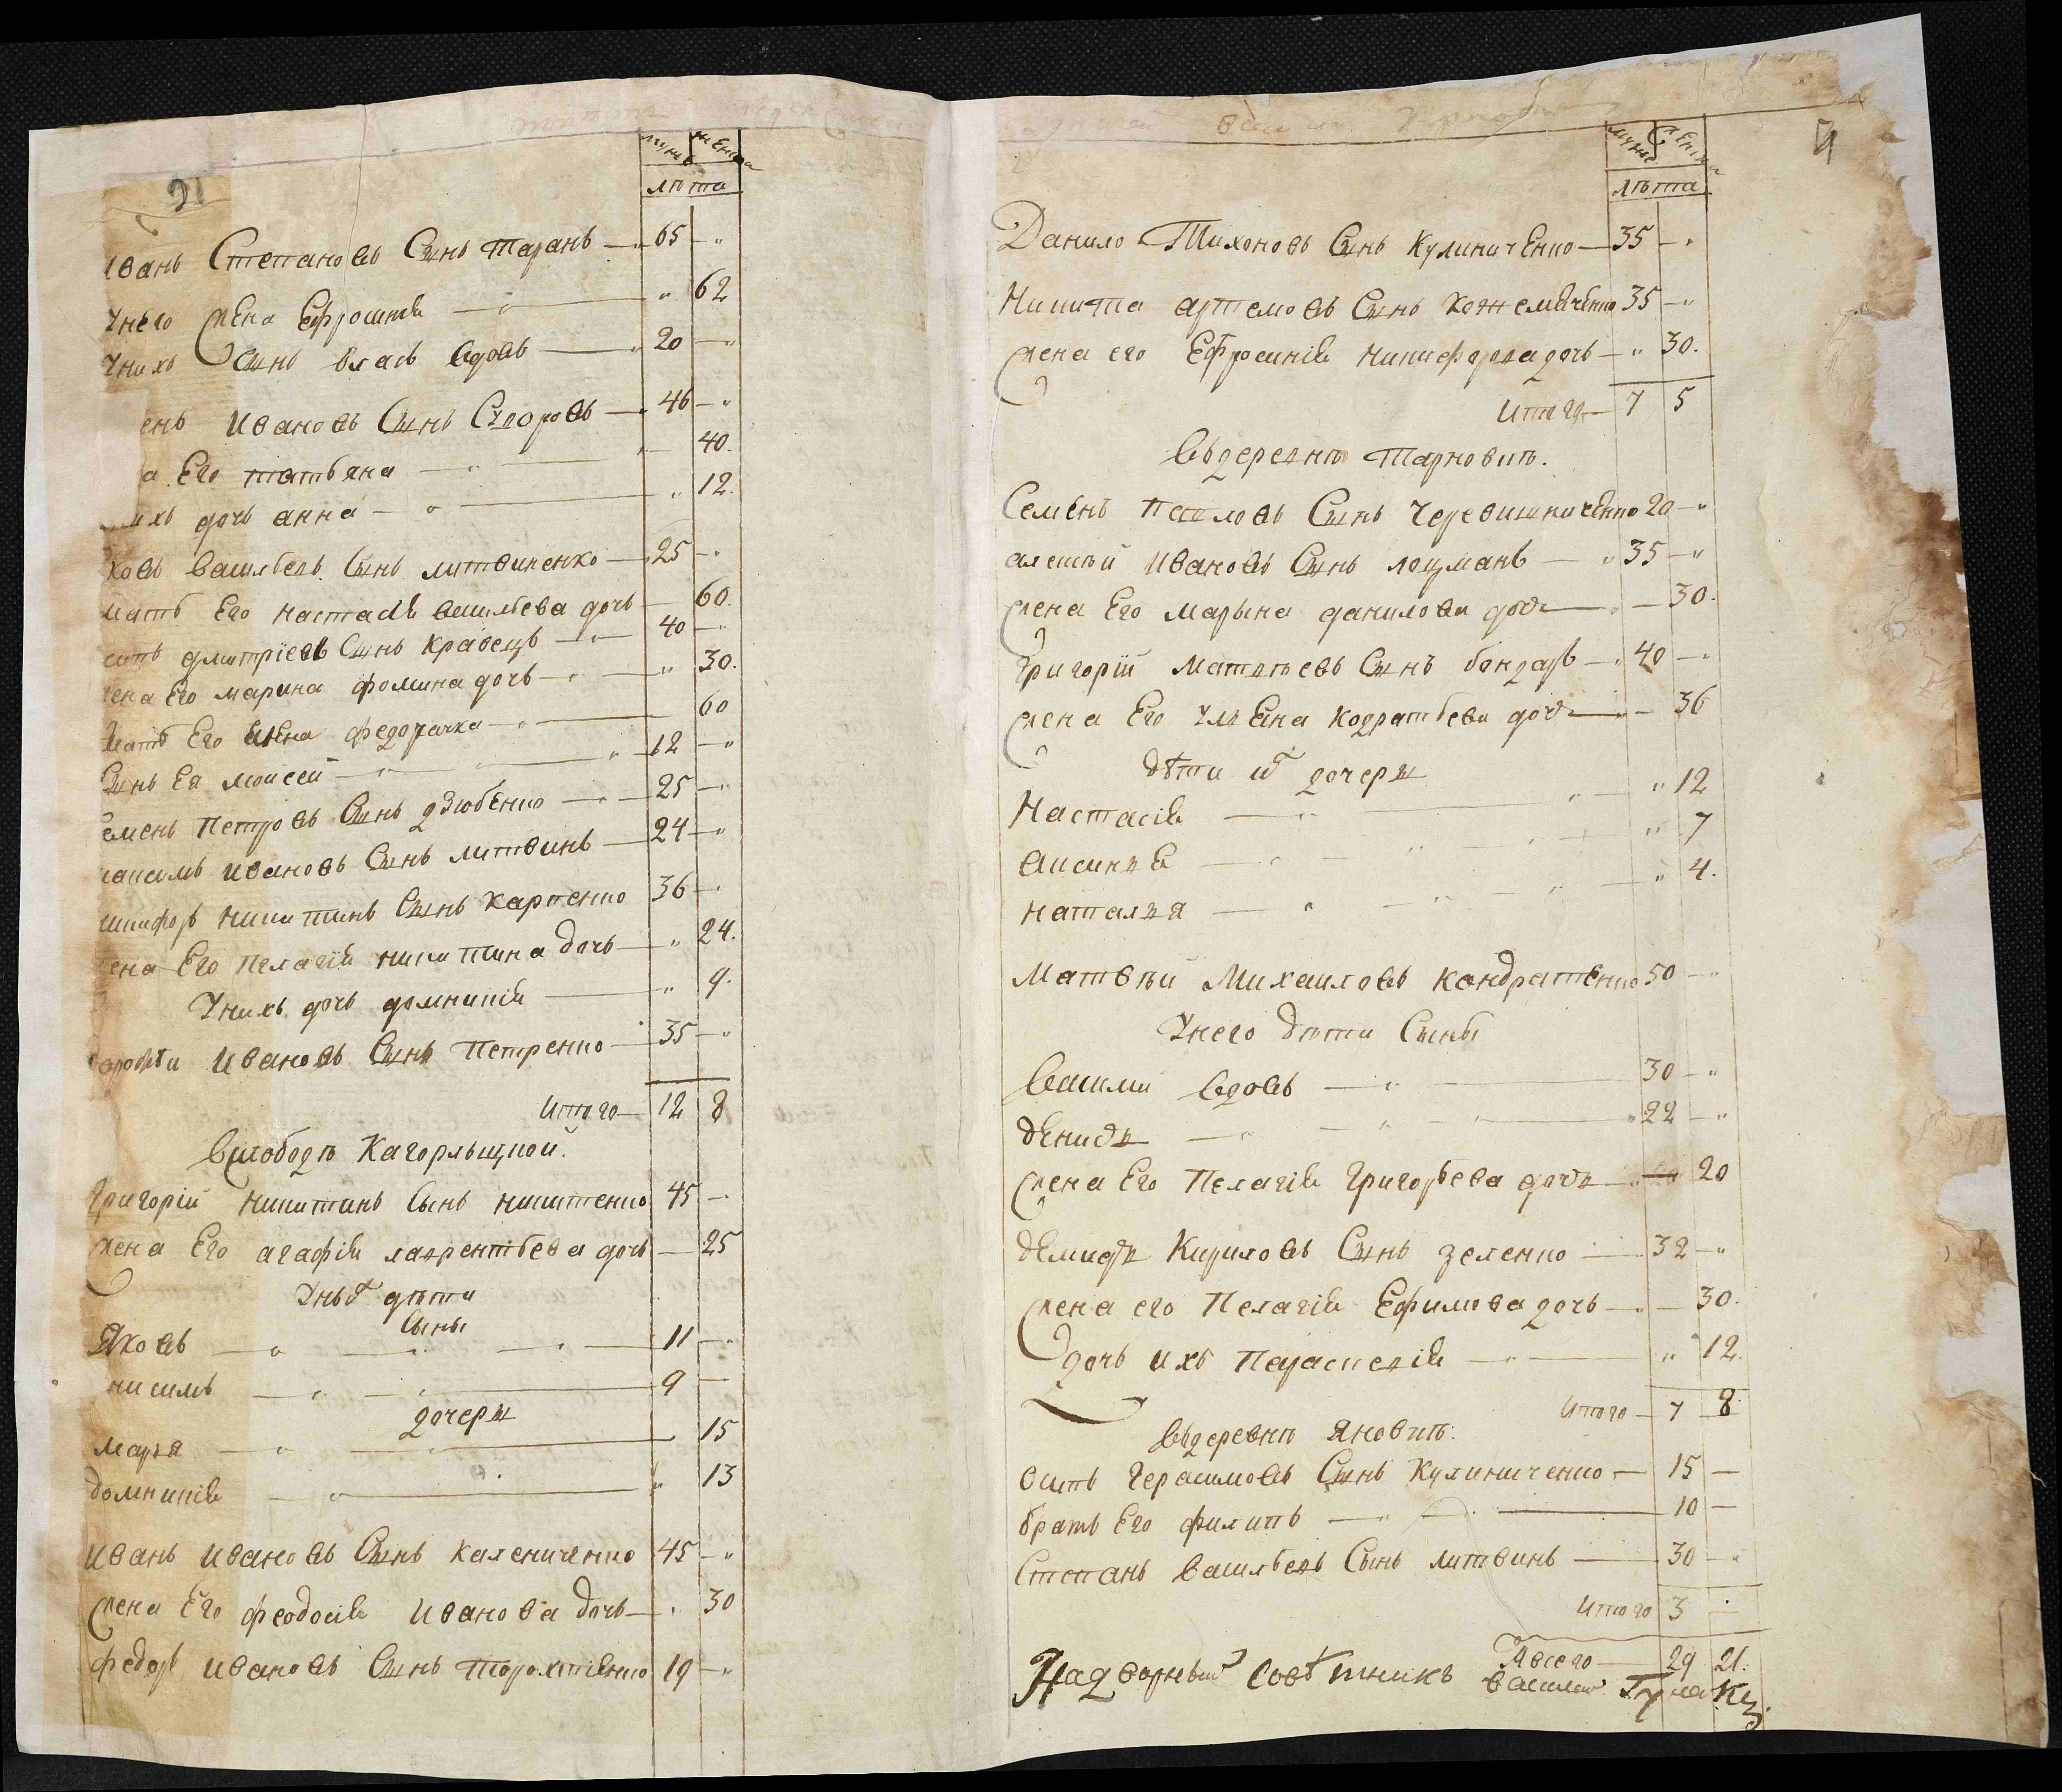 мужс женска
лѣта
Иванъ Степановъ Сынъ Таранъ — 65 — "
Унего жена Ефросинія — " 62
Унихъ Сынъ Власъ вдовъ — 20 — "
енъ Ивановъ Сынъ Сидоровъ — 46 — "
а Его татьяна — 40.
ихъ дочь анна — " — " 12.
ковъ Васильевъ Сынъ литвиненко — 25 — "
мать Его настасія васильева дочь — 60.
сипъ дмитріевъ Сынъ Кравецъ — 40 — "
жена Его марина фомина дочь — " 30.
Мать Его федорачка — 60
Сынъ Ея моисей — " 12 — "
Семенъ Петровъ Сынъ дзюбенко — 25 — "
максимъ Ивановъ Сынъ литвинъ — 24 — "
никифоръ никитинъ Сынъ Карпенко 36 — "
жена Его пелагія никитина дочь — " 24.
Унихъ дочь домникія — " 9.
дорофѣи Ивановъ Сынъ Петренко — 35 — "
Итого — 12 8
Вслободѣ Кагорлыцкой.
Григорій никитинъ Сынъ никитенко 45 — "
жена Его агафія лаврентьева дочь — 25
Унихъ дѣти
Сыны
Яковъ — " — 11 — "
нисимъ — " — 9 —
дочеры
марья — " — 15
домникія — " — " 13
Иванъ Ивановъ Сынъ калениченко 45 — "
жена Его феодосія Иванова дочь — " 30
федоръ Ивановъ Сынъ Торохтенко 19 — "
мужс женска
лѣта
Данило Тихоновъ Сынъ Кулиниченко — 35 — "
Никита артемовъ Сынъ кожемяченко 35 — "
жена его Ефросинія никифорова дочь — " 30.
Итого — 7 5
Въдеревнѣ Тарновкѣ.
Семенъ Павловъ Сынъ Черевишниченко 20 — "
алексѣй Ивановъ Сынъ лоцманъ — " 35 — "
жена Его марьина данилова дочь — " — 30.
Григорій Матвѣевъ Сынъ бондарь — " 40 — "
жена Его Ульяна кодратьева дочь — 36
дѣти их дочеры
Настасія — " — " 12
аксинья — " — " 7
наталья — " — " 4.
Матвѣй Михаиловъ Кондратенко 50 — "
Унего дѣти Сыны
Василий вдовъ — " — 30 — "
денисъ — " — " 22 — "
жена Его Пелагія Григорьева дочь — " 20
демидъ Кириловъ Сынъ зеленко — 32 — "
жена его Пелагія Ефимова дочь — " — 30.
дочь ихъ Параскевія — " — " 12.
Итого — 7 8.
Въдеревнѣ Яновкѣ.
осипъ Герасимовъ Сынъ Кулиниченко — 15 —
братъ Его филипъ — " — 10 —
Степанъ Васильевъ Сынъ литвинъ — 30 — "
Итого 3 —
Авсего — 29 21.
Надворный Совѣтникъ Василий